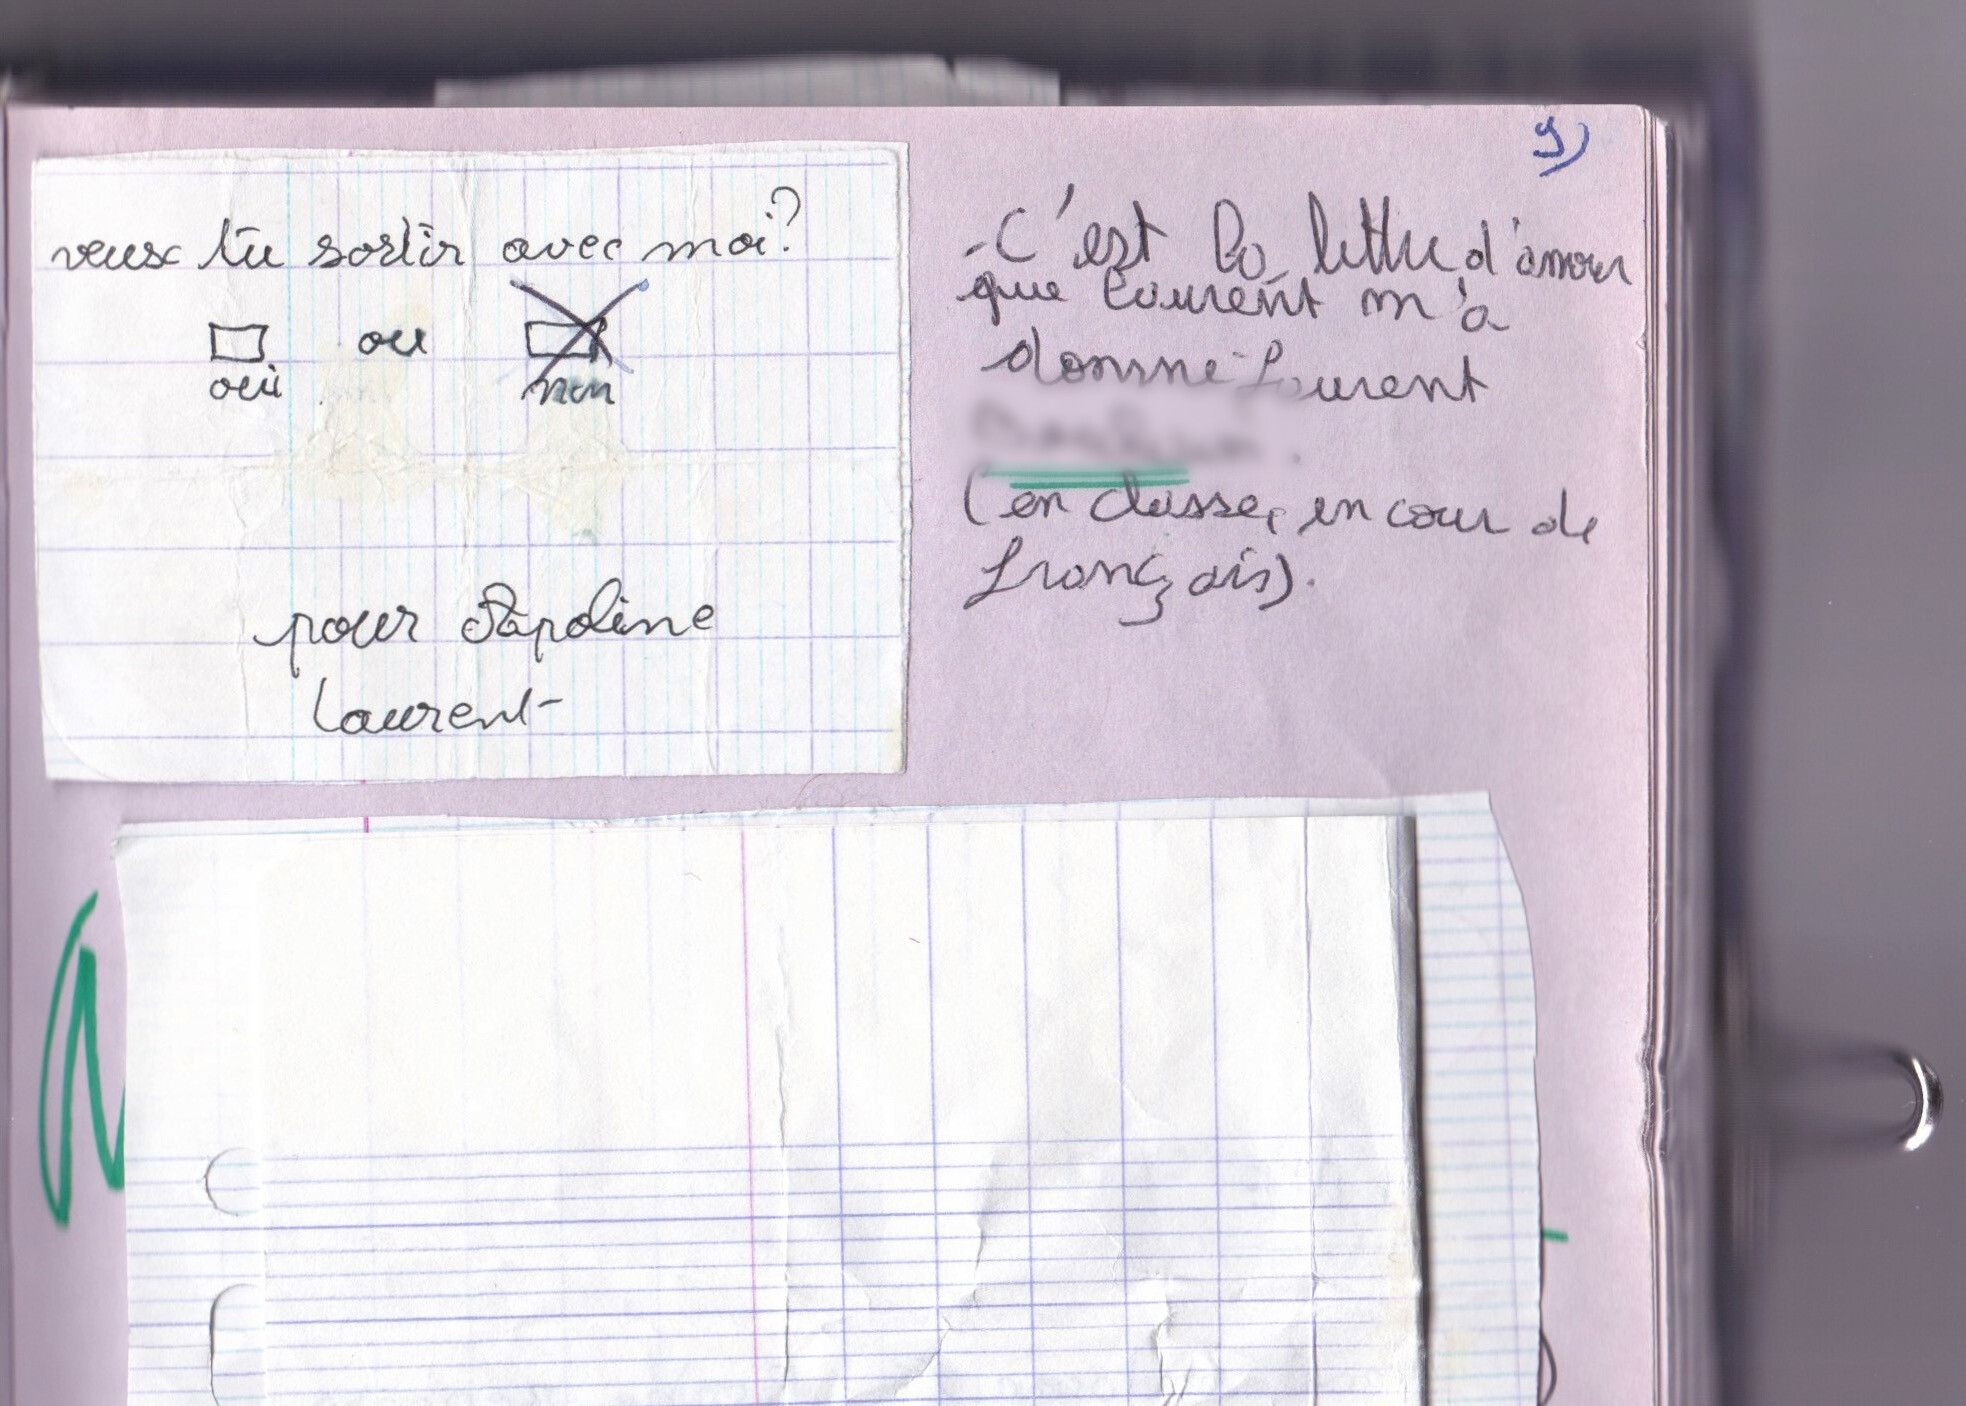 9)
veux tu sortir avec moi?
ou
oui non
pour Apoline
Laurent
- C'est la lettre d'amour
que Laurent m'a
donné Laurent
(en classe, en cour de
français).